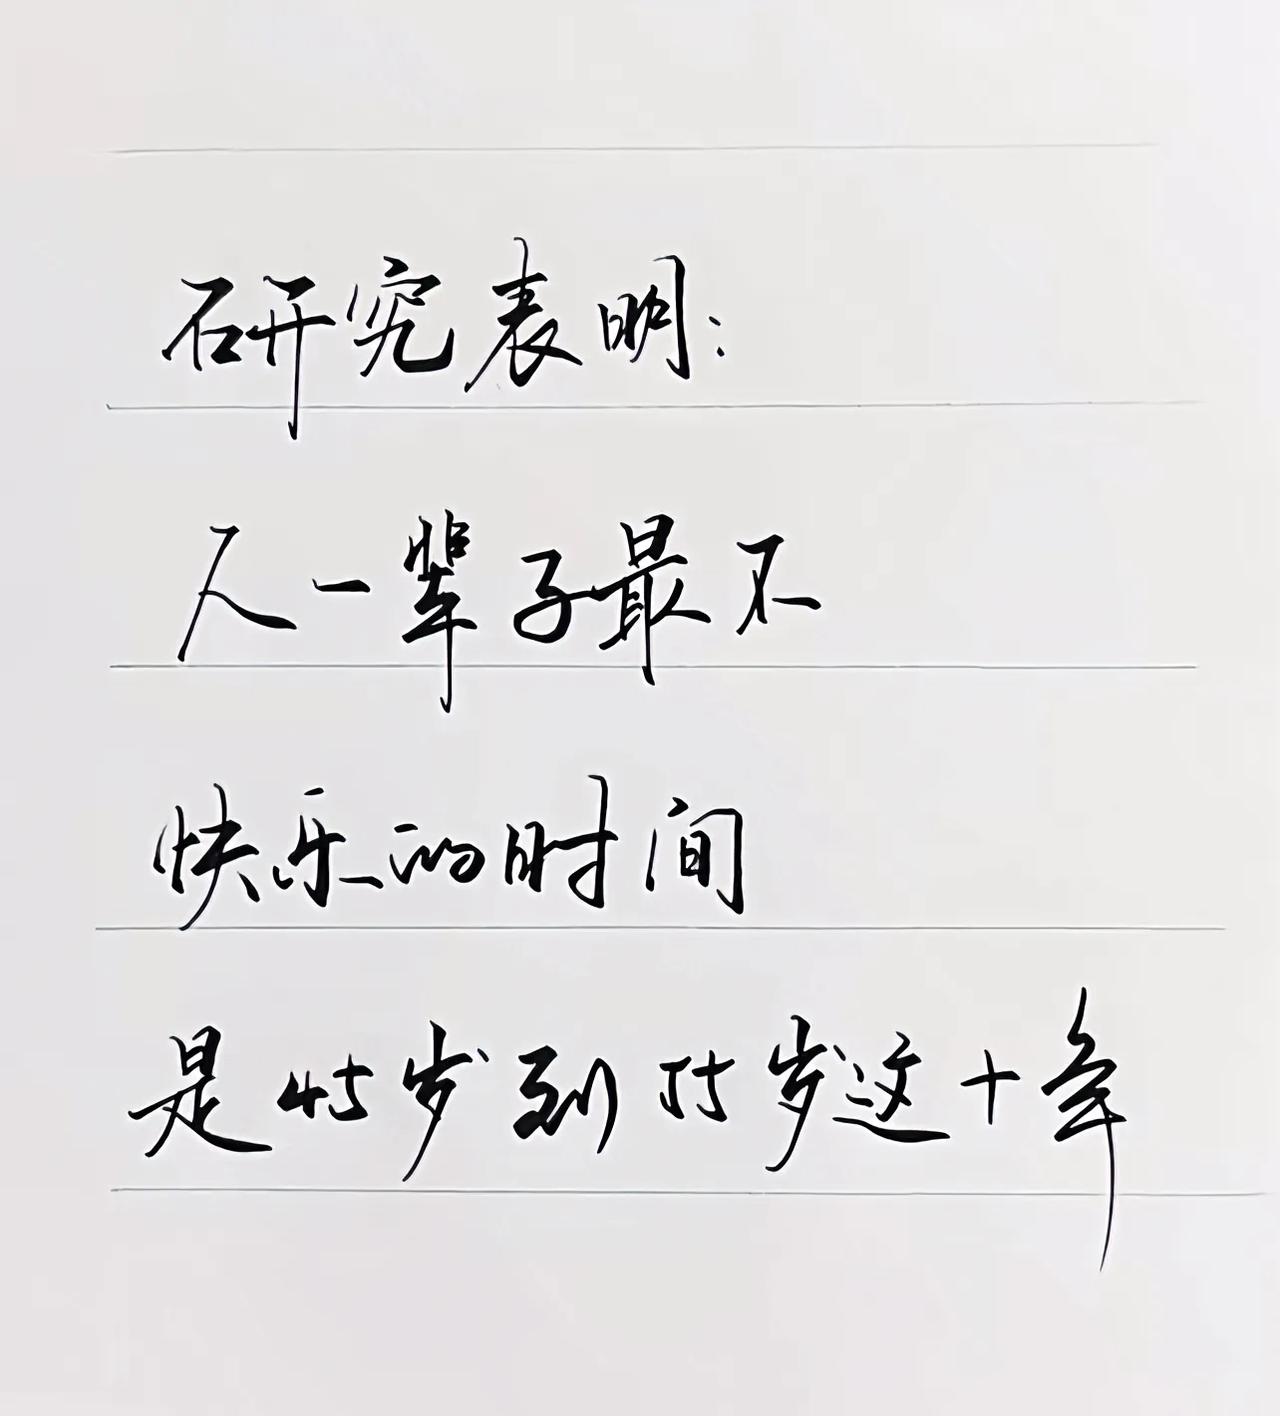 研究表明：
人一辈子最不
快乐的时间
是45岁到55岁这十年